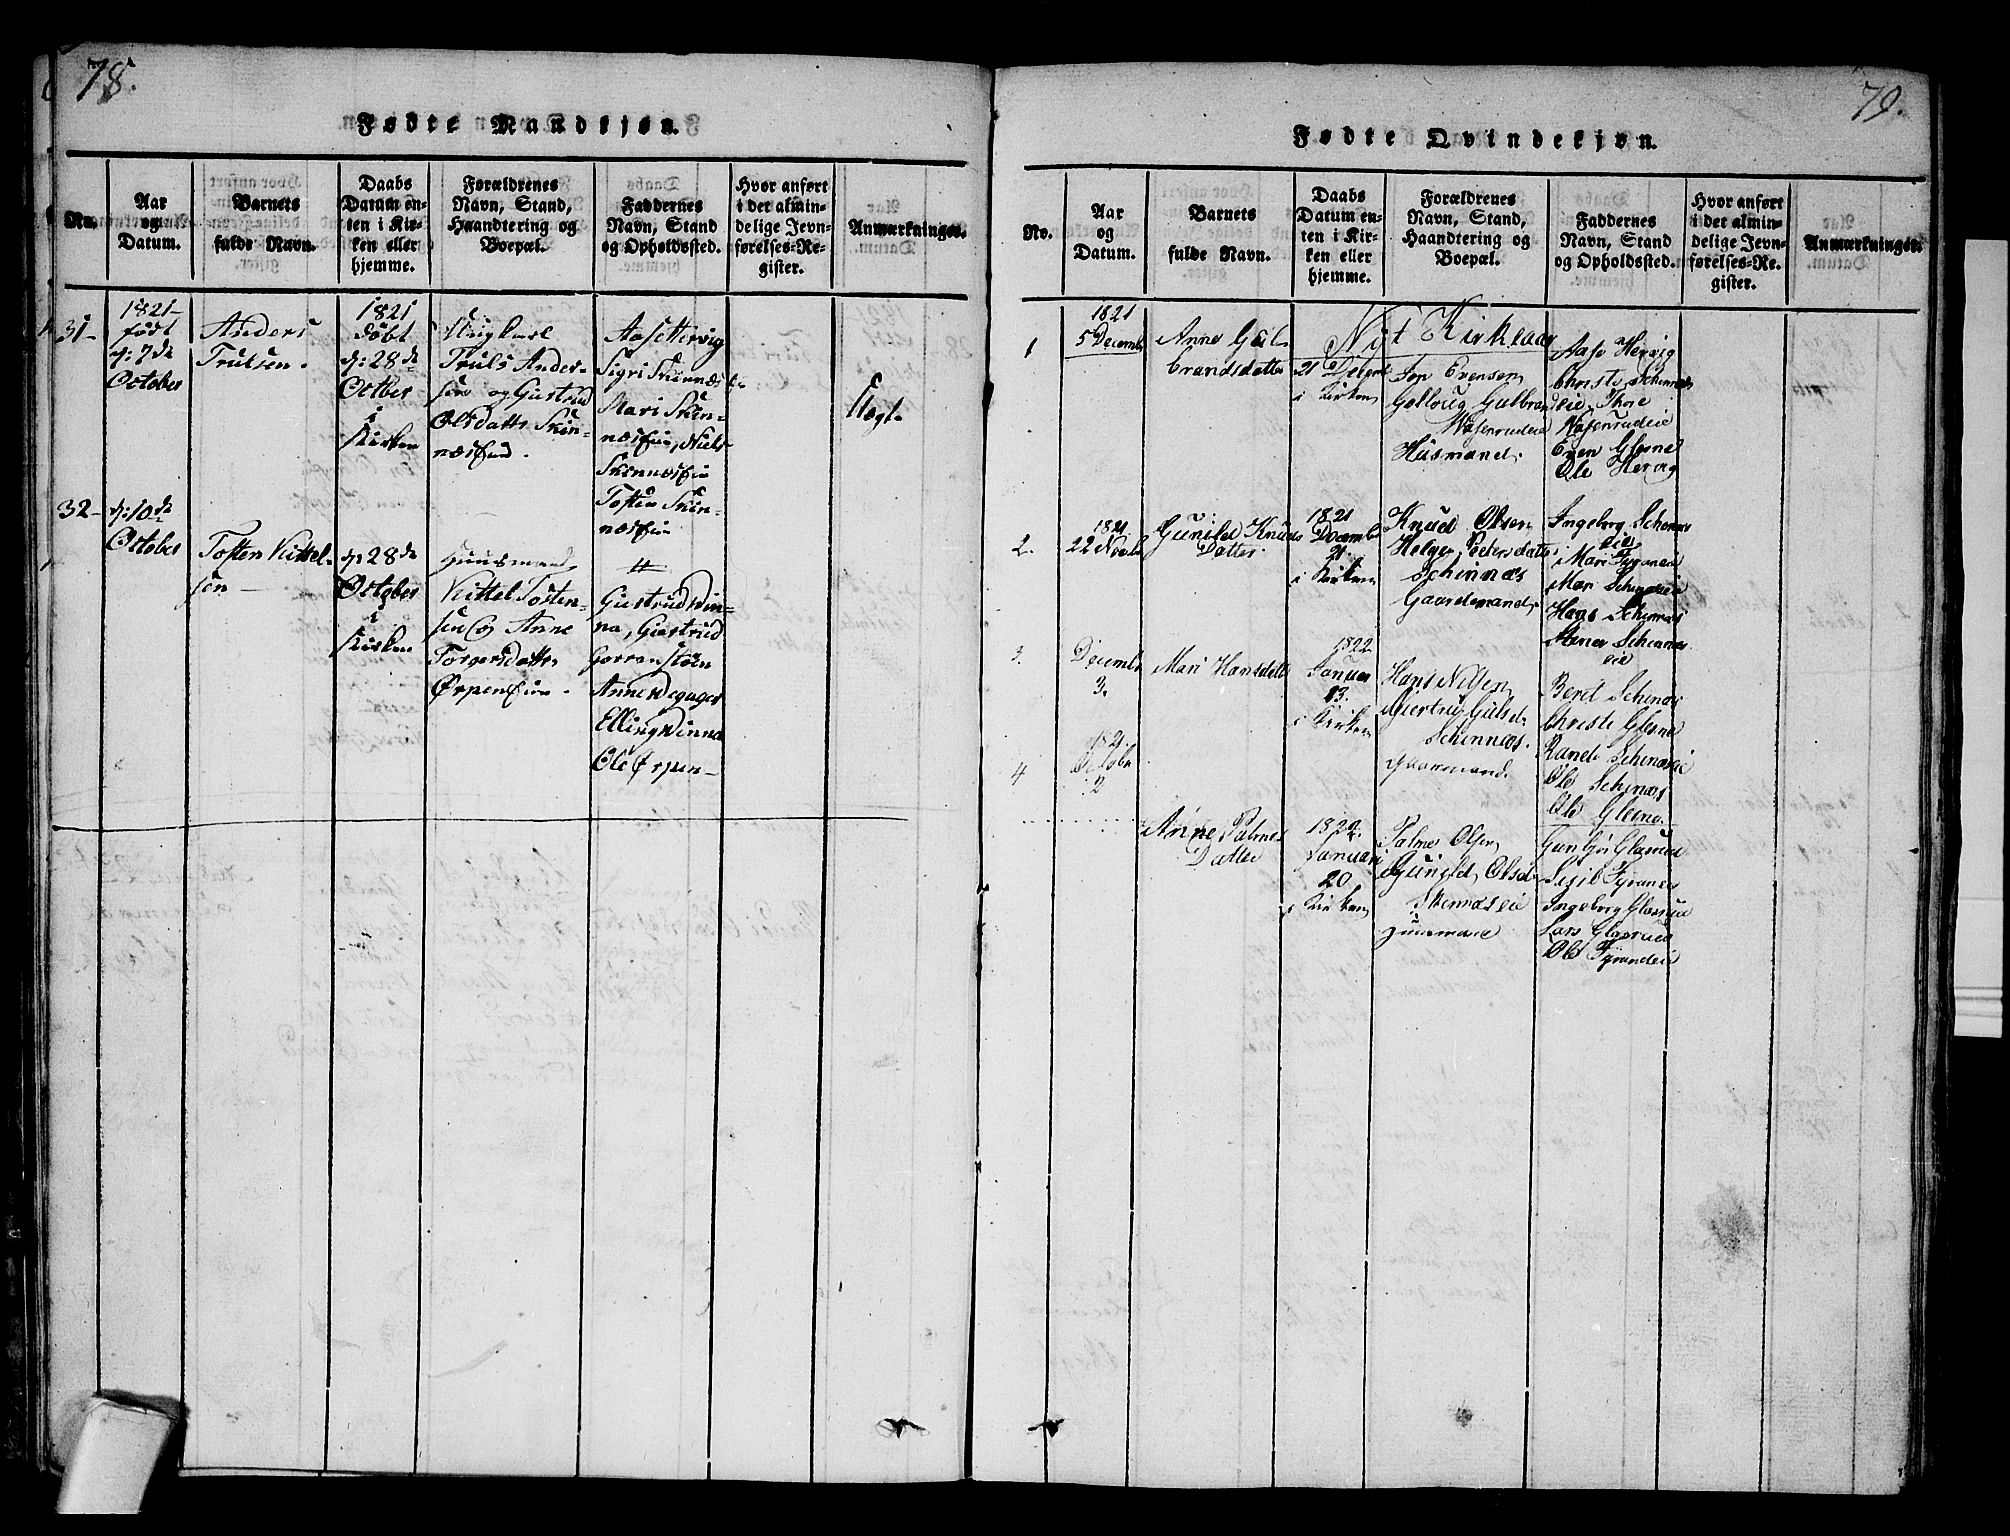 78.
Fødte Mandkjøn.
No.
Aar
og
Datum.
Barnets
fulde Navn.
Daabs
Datum en-
ten i Kir-
ken eller
hjemme.
Forældrenes
Navn, Stand,
Haandtering og
Boepæl.
Faddernes
Navn, Stand
og Opholdssted.
Hvor anført
i det almin-
delige Jevn-
førelses-Re-
gister.
Anmærkninger.
31-
1821-
født
d: 7de
October
Anders
Trulsen.
1821
døbt
d: 28de
Octber
i
Kirken
Ungkarl
Truls Ander-
sen og Giertrud
Olsdatter Skin-
næs
Aase Hervig
Sigri Skinnæs
Mari Skin-
næs, Niels
Skinnæs
Tosten Skin-
næs
Uægt.
32-
d: 10de
October
Tosten Kittel-
sen
d: 28de
October
i
Kirken
Huusmand
Kittel Tosten-
sen og Anne
Torgersdatter
Ørpen
Giertrud Vin-
na, Giertrud
Anne
Elling Vinna
Ole Ørpen-
79.
Fødte Qvindekjøn.
No.
Aar
og
Datum.
Barnets
fulde Navn.
Daabs
Datum en-
ten i Kir-
ken eller
hjemme.
Forældrenes
Navn, Stand,
Haandtering og
Boepæl.
Faddernes
Navn, Stand
og Opholdssted.
Hvor anført
i det almin-
delige Jevn-
førelses-Re-
gister.
Anmærkninger.
Nyt Kirkeaar
1
1821
5 Decemb
Anne Gul-
brandsdatter
21 Decemb
i Kirken
Evensen
Gulbran
Husmand.
Aase Hervig
Christi Schinnes
eie, Thore
Even Glesne
Ole Hervig
2.
1821
22 Novb
Gunild Knuds
Datter.
1821
Decemb
21.
i Kirken
Knud Olsen
Helge Pedersdatter
Schinnæs
Gaardmand.
Ingeborg Schinnes
eie
Mari
Mari Schinnæseie
Hans Schinnæs
Schinnæs
eie
3.
Decemb
3.
Mari Hansdatter
1822
Januar
13.
i Kirken
Hans Nilsen
Giertru Gulsd.
Schinnæs.
Gaarmand.
Berit Schinæs
Christi Glesne
Randi Schinæseie
Ole Schinæs
Ole Glesne.
4
1821.
Octobr
2
Anne Palmes
Datter
1822.
Januari
20
i Kirken
Palme Olsen
Gunild Olsd.
Skinnæseie
Huusmand
Glasrud
Ingeborg Glasrud
Lars Glasrud
Ole